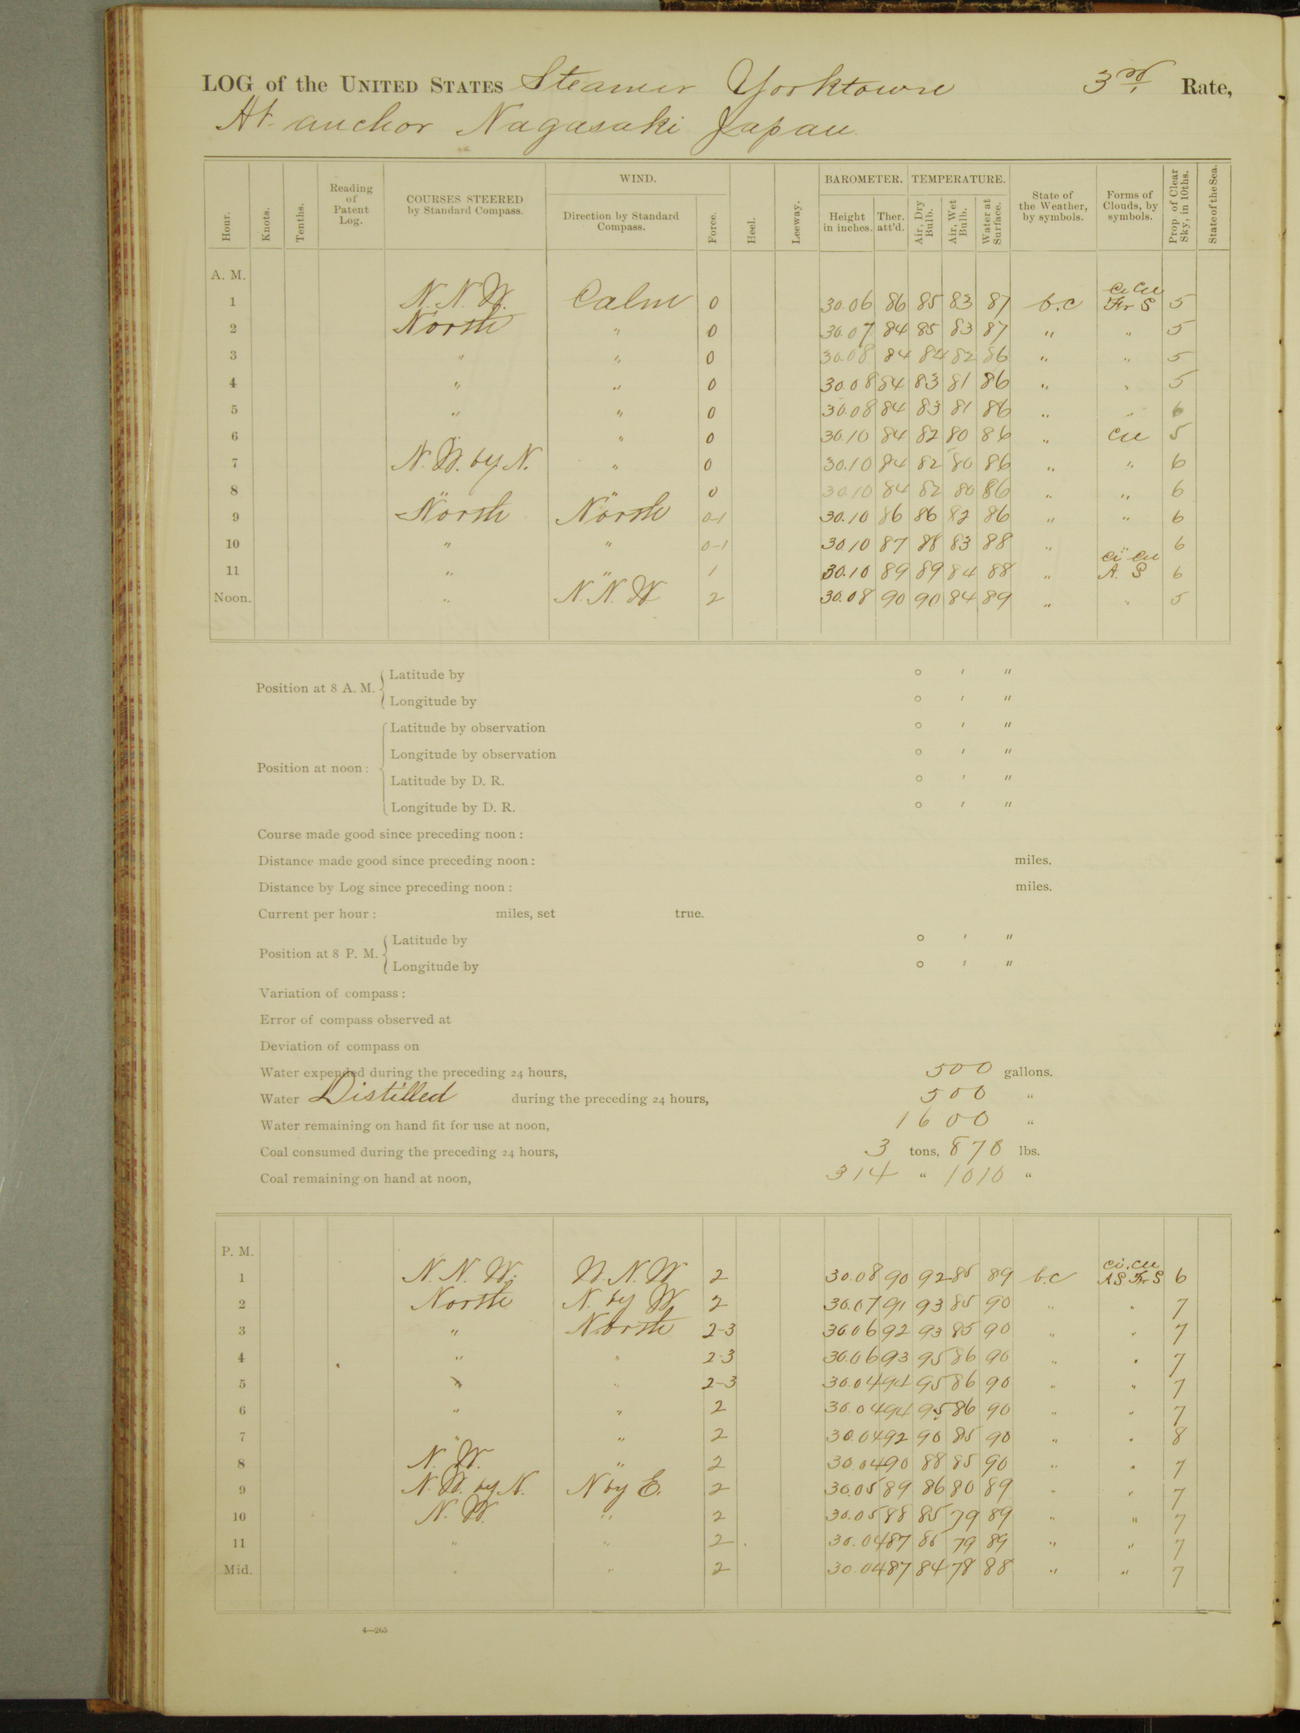 LOG of the UNITED STATES Steamer Yorktown 3rd Rate,
At anchor Nagasaki Japan
Hour. Knots. Tenths. Reading of Patent Log. COURSES STEERED by Standard Compass. WIND. Direction by Standard Compass. Force. Heel. Leeway. BAROMETER. Height in inches. Ther. att'd. TEMPERATURE. Air, Dry Bulb. Air, Wet Bulb. Water at Surface. State of the Weather, by symbols. Forms of Clouds, by symbols. Prop. of Clear Sky, in 10ths. State of the Sea.
A. M.
1 N.N.W. Calm 0 30.06 86 85 83 87 b.c Ci Cu Fr S 5
2 North " 0 30.07 84 85 83 87 " " 5
3 " " 0 30.08 84 84 82 86 " " 5
4 " " 0 30.08 84 83 81 86 " " 5
5 " " 0 30.08 84 83 81 86 " " 6
6 " " 0 30.10 84 82 80 86 " Cu 5
7 N.W. by N. " 0 30.10 84 82 80 86 " " 6
8 " " 0 30.10 84 82 80 86 " " 6
9 North North 0-1 30.10 86 86 82 86 " " 6
10 " " 0-1 30.10 87 88 83 88 " " 6
11 " " 1 30.10 89 89 84 88 " Ci Cu A. S 6
Noon. " N.N.W 2 30.08 90 90 84 89 " " 5
Position at 8 A. M. Latitude by ° ' "
Longitude by ° ' "
Position at noon: Latitude by observation ° ' "
Longitude by observation ° ' "
Latitude by D. R. ° ' "
Longitude by D. R. ° ' "
Course made good since preceding noon:
Distance made good since preceding noon: miles.
Distance by Log since preceding noon: miles.
Current per hour: miles, set true.
Position at 8 P. M. Latitude by ° ' "
Longitude by ° ' "
Variation of compass:
Error of compass observed at
Deviation of compass on
Water expended during the preceding 24 hours, 500 gallons.
Water Distilled during the preceding 24 hours, 500 "
Water remaining on hand fit for use at noon, 1600 "
Coal consumed during the preceding 24 hours, 3 tons, 870 lbs.
Coal remaining on hand at noon, 314 " 1010 "
P. M.
1 N.N.W. N.N.W 2 30.08 90 92 85 89 b.c Ci.Cu A S Fr S 6
2 North N. by W 2 30.07 91 93 85 90 " " 7
3 " North 2-3 30.06 92 93 85 90 " " 7
4 " " 2-3 30.06 93 95 86 90 " " 7
5 " " 2-3 30.04 94 95 86 90 " " 7
6 " " 2 30.04 94 95 86 90 " " 7
7 " " 2 30.04 92 90 85 90 " " 8
8 N.W. " 2 30.04 90 88 85 90 " " 7
9 N.W. by N. N by E. 2 30.05 89 86 80 89 " " 7
10 N.W. " 2 30.05 88 85 79 89 " " 7
11 " " 2 30.04 87 85 79 89 " " 7
Mid. " " 2 30.04 87 84 78 88 " " 7
4—265